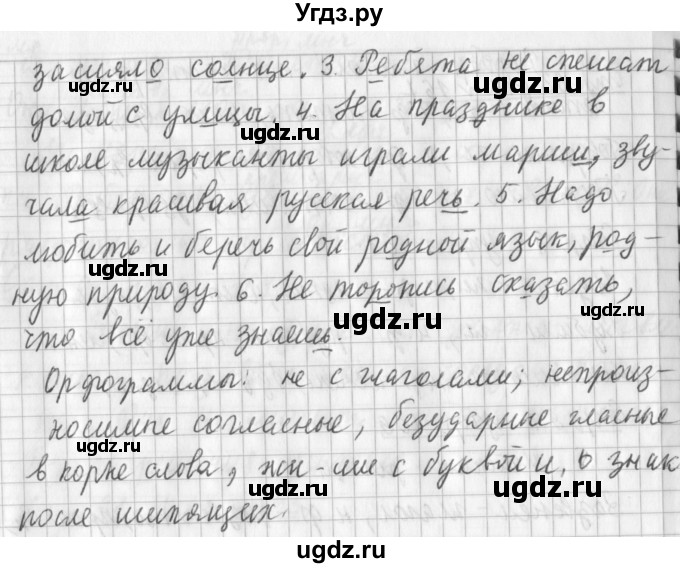 Угдз.ру
засияло солнце. 3. Ребята не спешат
домой с улицы. 4. На празднике в
школе музыканты играли марши, зву-
чала красивая русская речь. 5. Надо
любить и беречь свой родной язык, род-
ную природу. 6. Не торопись сказать,
что всё уже знаешь.
Орфограммы: не с глаголами; непроиз-
носимые согласные, безударные гласные
в корне слова, жи-ши с буквой и, ь знак
после шипящих.
ugdz.ru
ugdz.ru
ugdz.ru
ugdz.ru
ugdz.ru
ugdz.ru
ugdz.ru
ugdz.ru
ugdz.ru
ugdz.ru
ugdz.ru
ugdz.ru